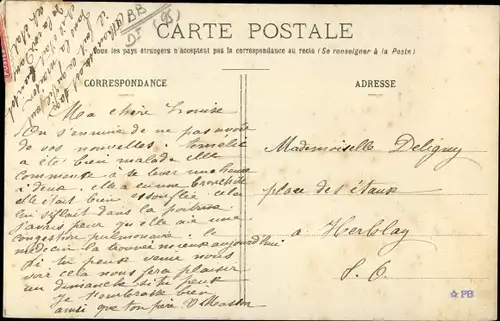 BB
DF (95)
CARTE POSTALE
Tous les pays étrangers n'acceptent pas la correspondance au recto (Se renseigner à la Poste)
CORRESPONDANCE
Ma chère Louise
On s'ennuie de ne pas avoir
de vos nouvelles.
a été bien malade elle
commence à se lever une heure
à deux. elle a eu une bronchite
elle était bien essouflée cela
lui siflait dans la poitrine
j'avais peur qu'elle aie une
congestion pulmonaire. le
médecin la trouvée mieux aujourd'hui
Si tu peux venir nous
voir cela nous fera plaisir
un dimanche si tu peux
Je t'embrasse bien
ainsi que ton père V Masson
ADRESSE
Mademoiselle Deligny
place des étaux
a Herblay
S. O.
PB